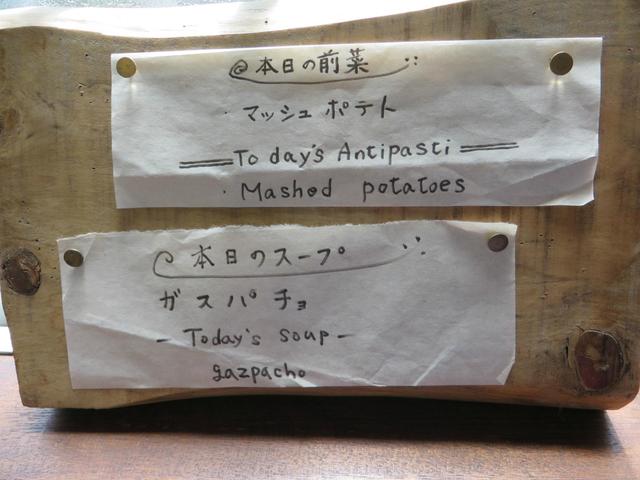 本日の前菜
・マッシュポテト
Today's Antipasti
・Mashed potatoes
本日のスープ
ガスパチョ
- Today's soup -
gazpacho